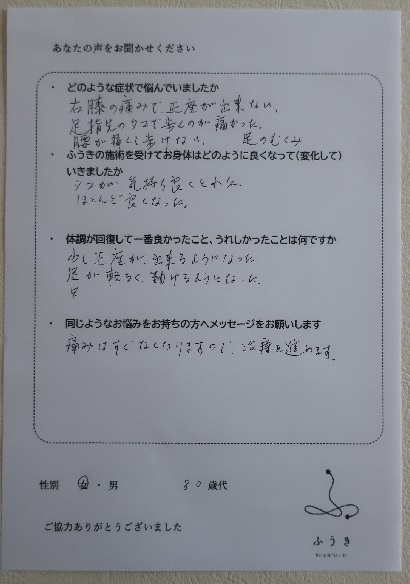 あなたの声をお聞かせください
・ どのような症状で悩んでいましたか
右膝の痛みで正座が出来ない、
足指先のタコで歩くのが痛かった。
腰が痛くて歩けない、 足のむくみ
・ ふうきの施術を受けてお身体はどのように良くなって(変化して)
いきましたか
タコが、気持ち良くとれた、
ほとんど良くなった。
・ 体調が回復して一番良かったこと、うれしかったことは何ですか
少し正座が、出来るようになった
足が軽るく、動けるようになった、
・ 同じようなお悩みをお持ちの方へメッセージをお願いします
痛みはすぐなくなりますので、治療を進めます。
性別 女・男 80歳代
ご協力ありがとうございました
ふうき